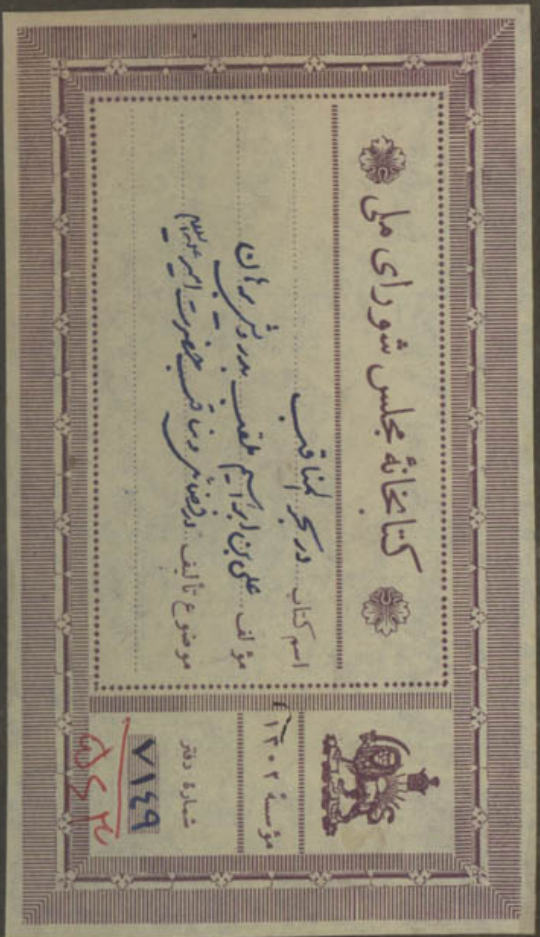 کتابخانهٔ مجلس شورای ملی
اسم کتاب در بحر المناقب
مؤلف علی بن ابراهیم ملقب بدرویش برهان
موضوع تألیف در فضائل و مناقب حضرت امیر علیه السلام
مؤسسهٔ ۱۳۰۲
شمارهٔ دفتر
۷۱۴۹